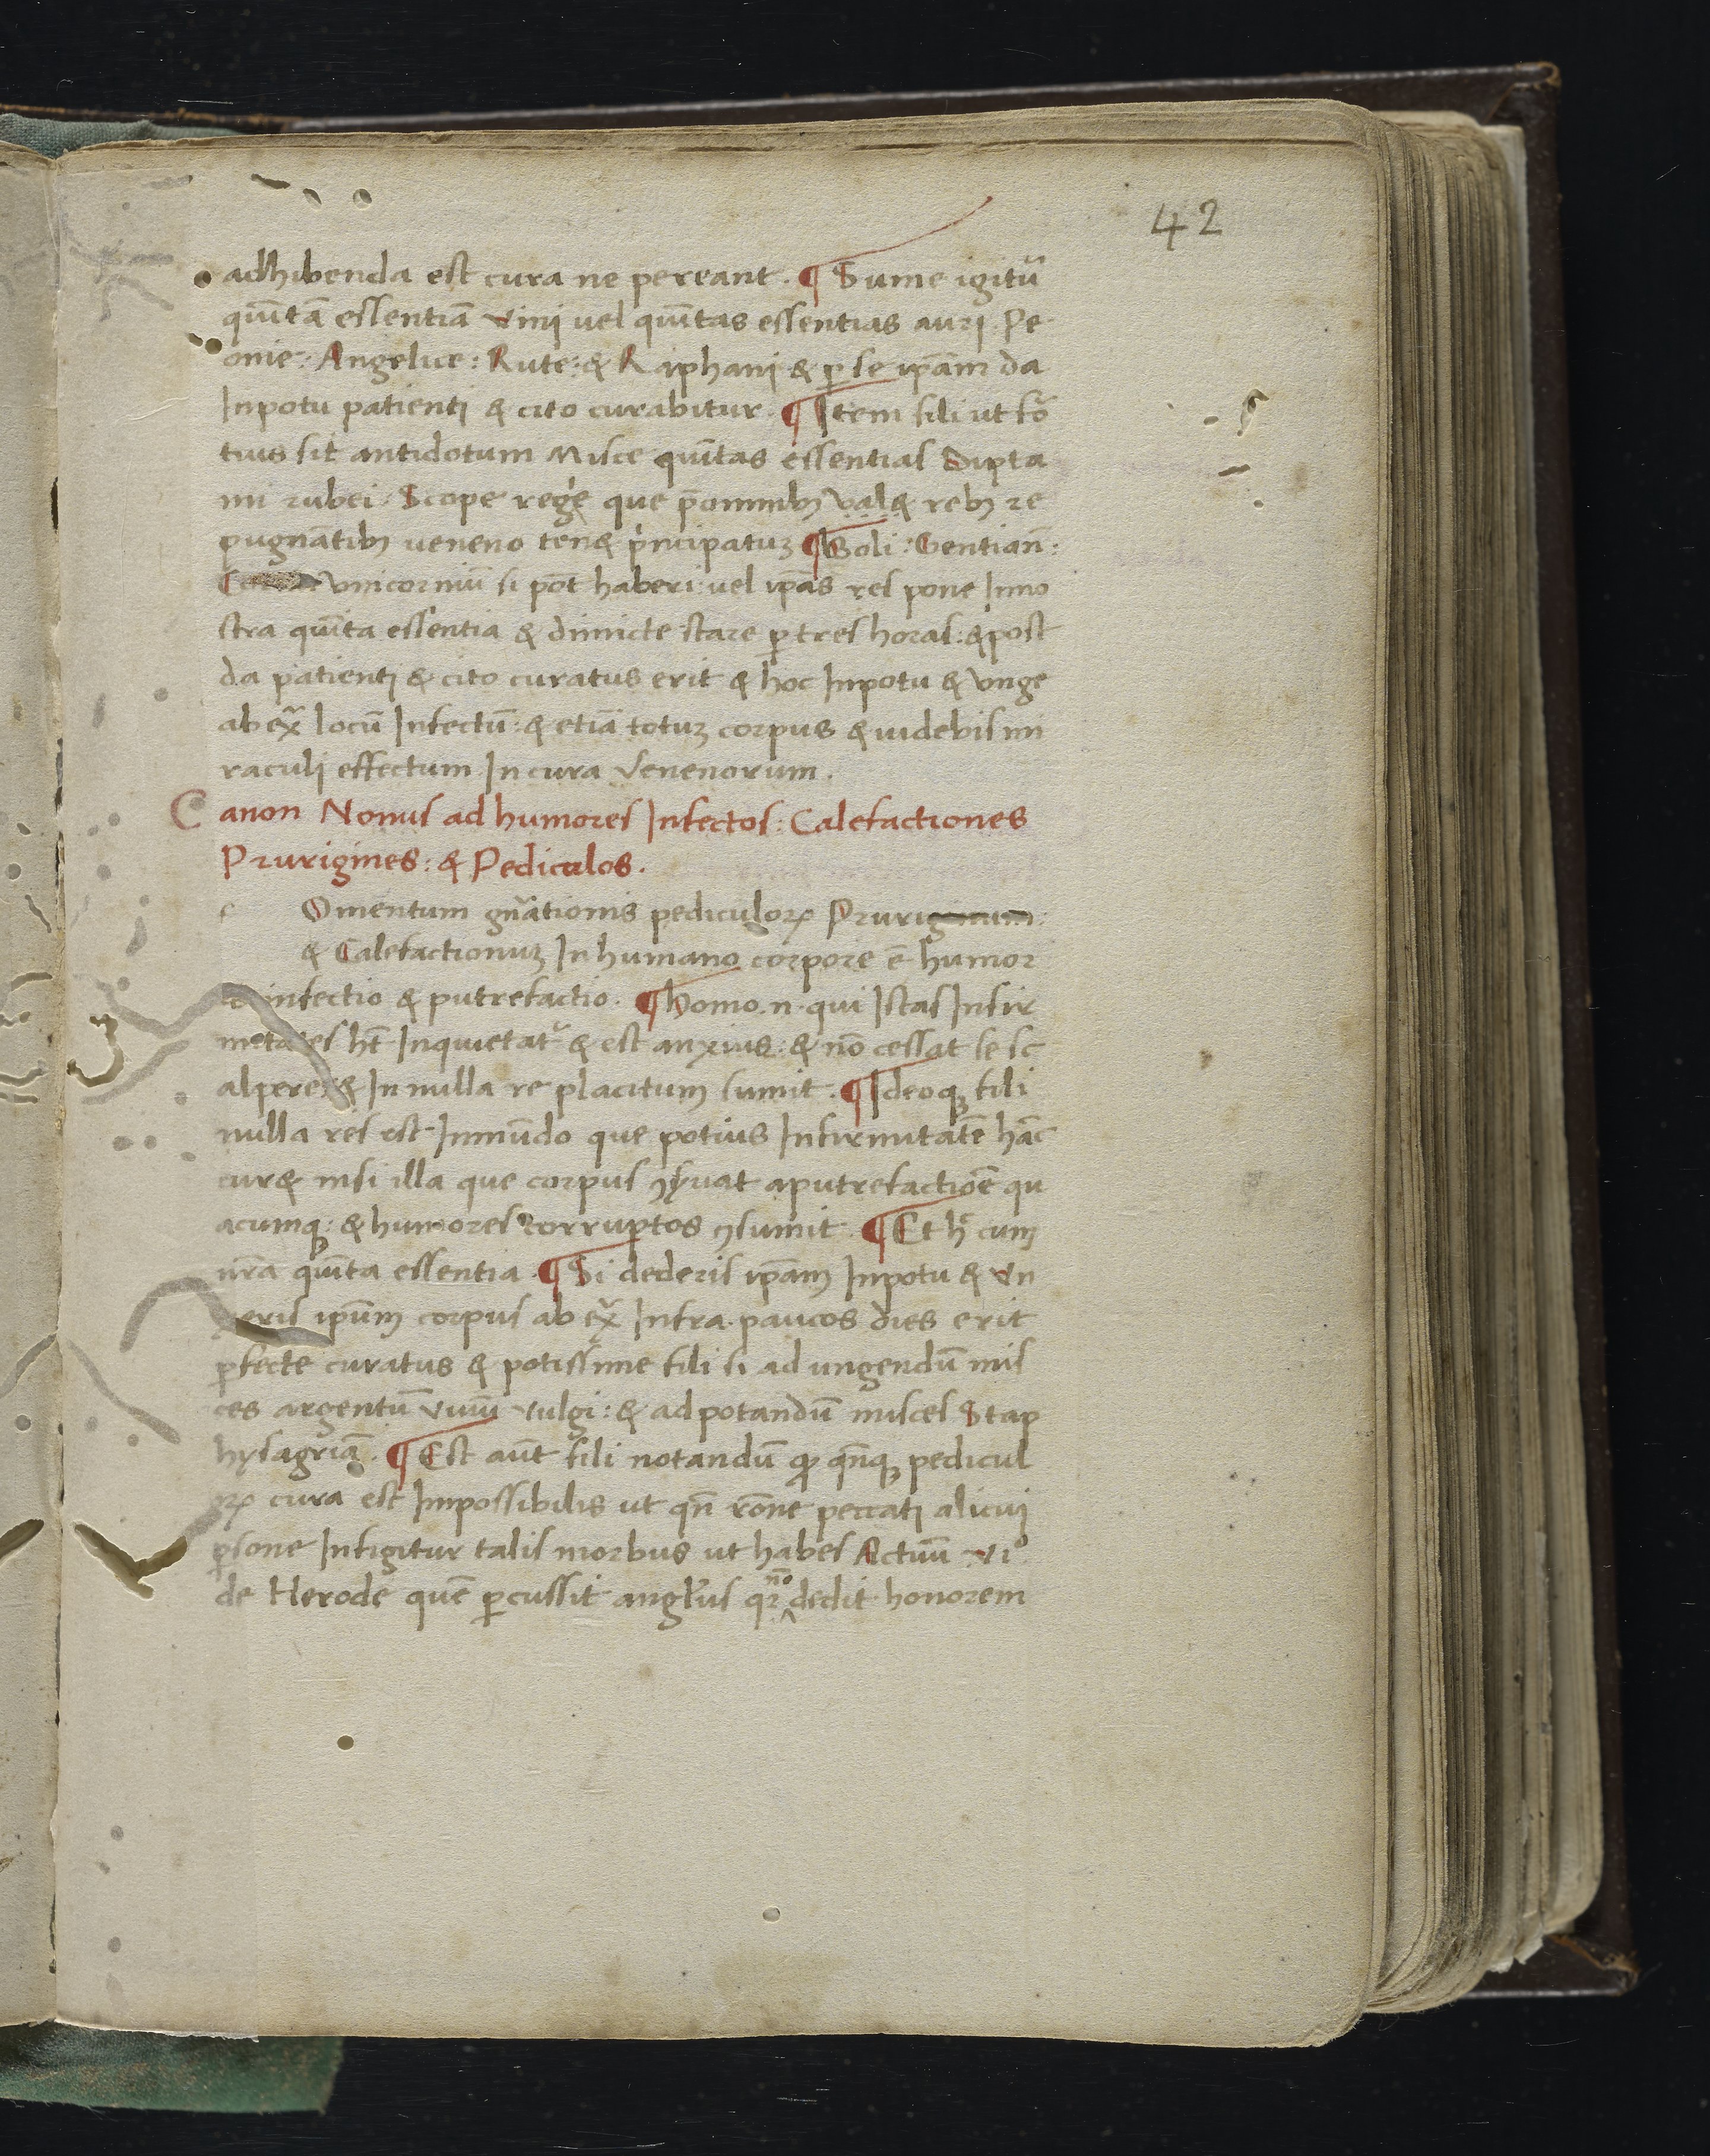 42
adhibenda est cura ne pereant. ¶ Sume igitũ
quĩtã essentiã vini vel quĩtas essentias auri. Pe
onie: Angelice: Rute: & Raphani & p̱ se ip̃am da
Inpotu patienti & cito curabitur. ¶ Item fili ut fo᷒
tius sit antidotum Misce quĩtas essentias Dipta
mi rubei. Scope regẹ que p̃ omnibꝫ val& rebꝫ re
pugnãtibꝫ veneno ten& p'ncipatuꝫ ¶ Boli: Gentiañ:
vnicorniũ si põt haberi: vel ip̃as res pone Inno
stra quĩta essentia & dimicte stare p̱ tres horas: & post
da patienti & cito curatus erit & hoc Inpotu & vnge
ab ex̃ locũ Infectũ: & etiã totuꝫ corpus & videbis mi
raculi effectum In cura venenorum.
Canon Nonus ad humores Infectos: Calefactiones
Prurigines: & Pediculos.
Omentum gñationis pediculoꝝ Pruriginum:
& Calefactionuꝫ In humano corpore ẽ humor
infectio & putrefactio. ¶ Homo .n. qui Istas Infir
mitates hñt Inquietat᷒ & est anxius: & nõ cessat se sc
alpere: & In nulla re placitum sumit. ¶ Ideoqꝫ fili
nulla res est Inmũdo que potius Infirmitatẽ hãc
cur& nisi illa que corpus ꝯẜuat aputrefactiõe qu
acumqꝫ: & humores corruptos ꝯsumit. ¶ Et hͨ cum
nr̃a quĩta essentia. ¶ Si dederis ip̃am Inpotu & vn
geris ip̃um corpus ab ex̃ Infra paucos dies erit
p̱fecte curatus & potissime fili si ad ungendũ mis
ces argentũ vivũ vulgi: & ad potandũ misces Stap
hysagriã. ¶ Est aũt fili notandũ ꝙ qñqꝫ pedicul
oꝝ cura est Impossibilis ut qñ rõne peccati alicui
p̱sone Infigitur talis morbus ut habes Actuũ viº
de Herode quẽ p̱cussit anglus qꝛ nõ dedit honorem